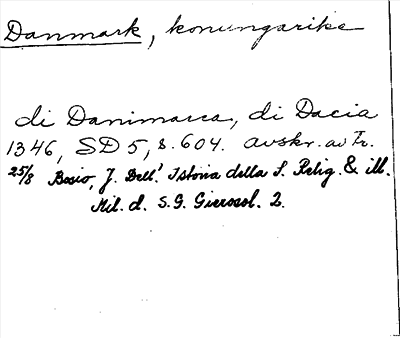 Danmark, konungarike
di Danimarca, di Dacia
1346, SD 5, s. 604. avskr. av Fr.
25/8 Bosio, J. Dell' Istoria della S. Relig. & ill.
Mil. d. S. G. Gierosol. 2.